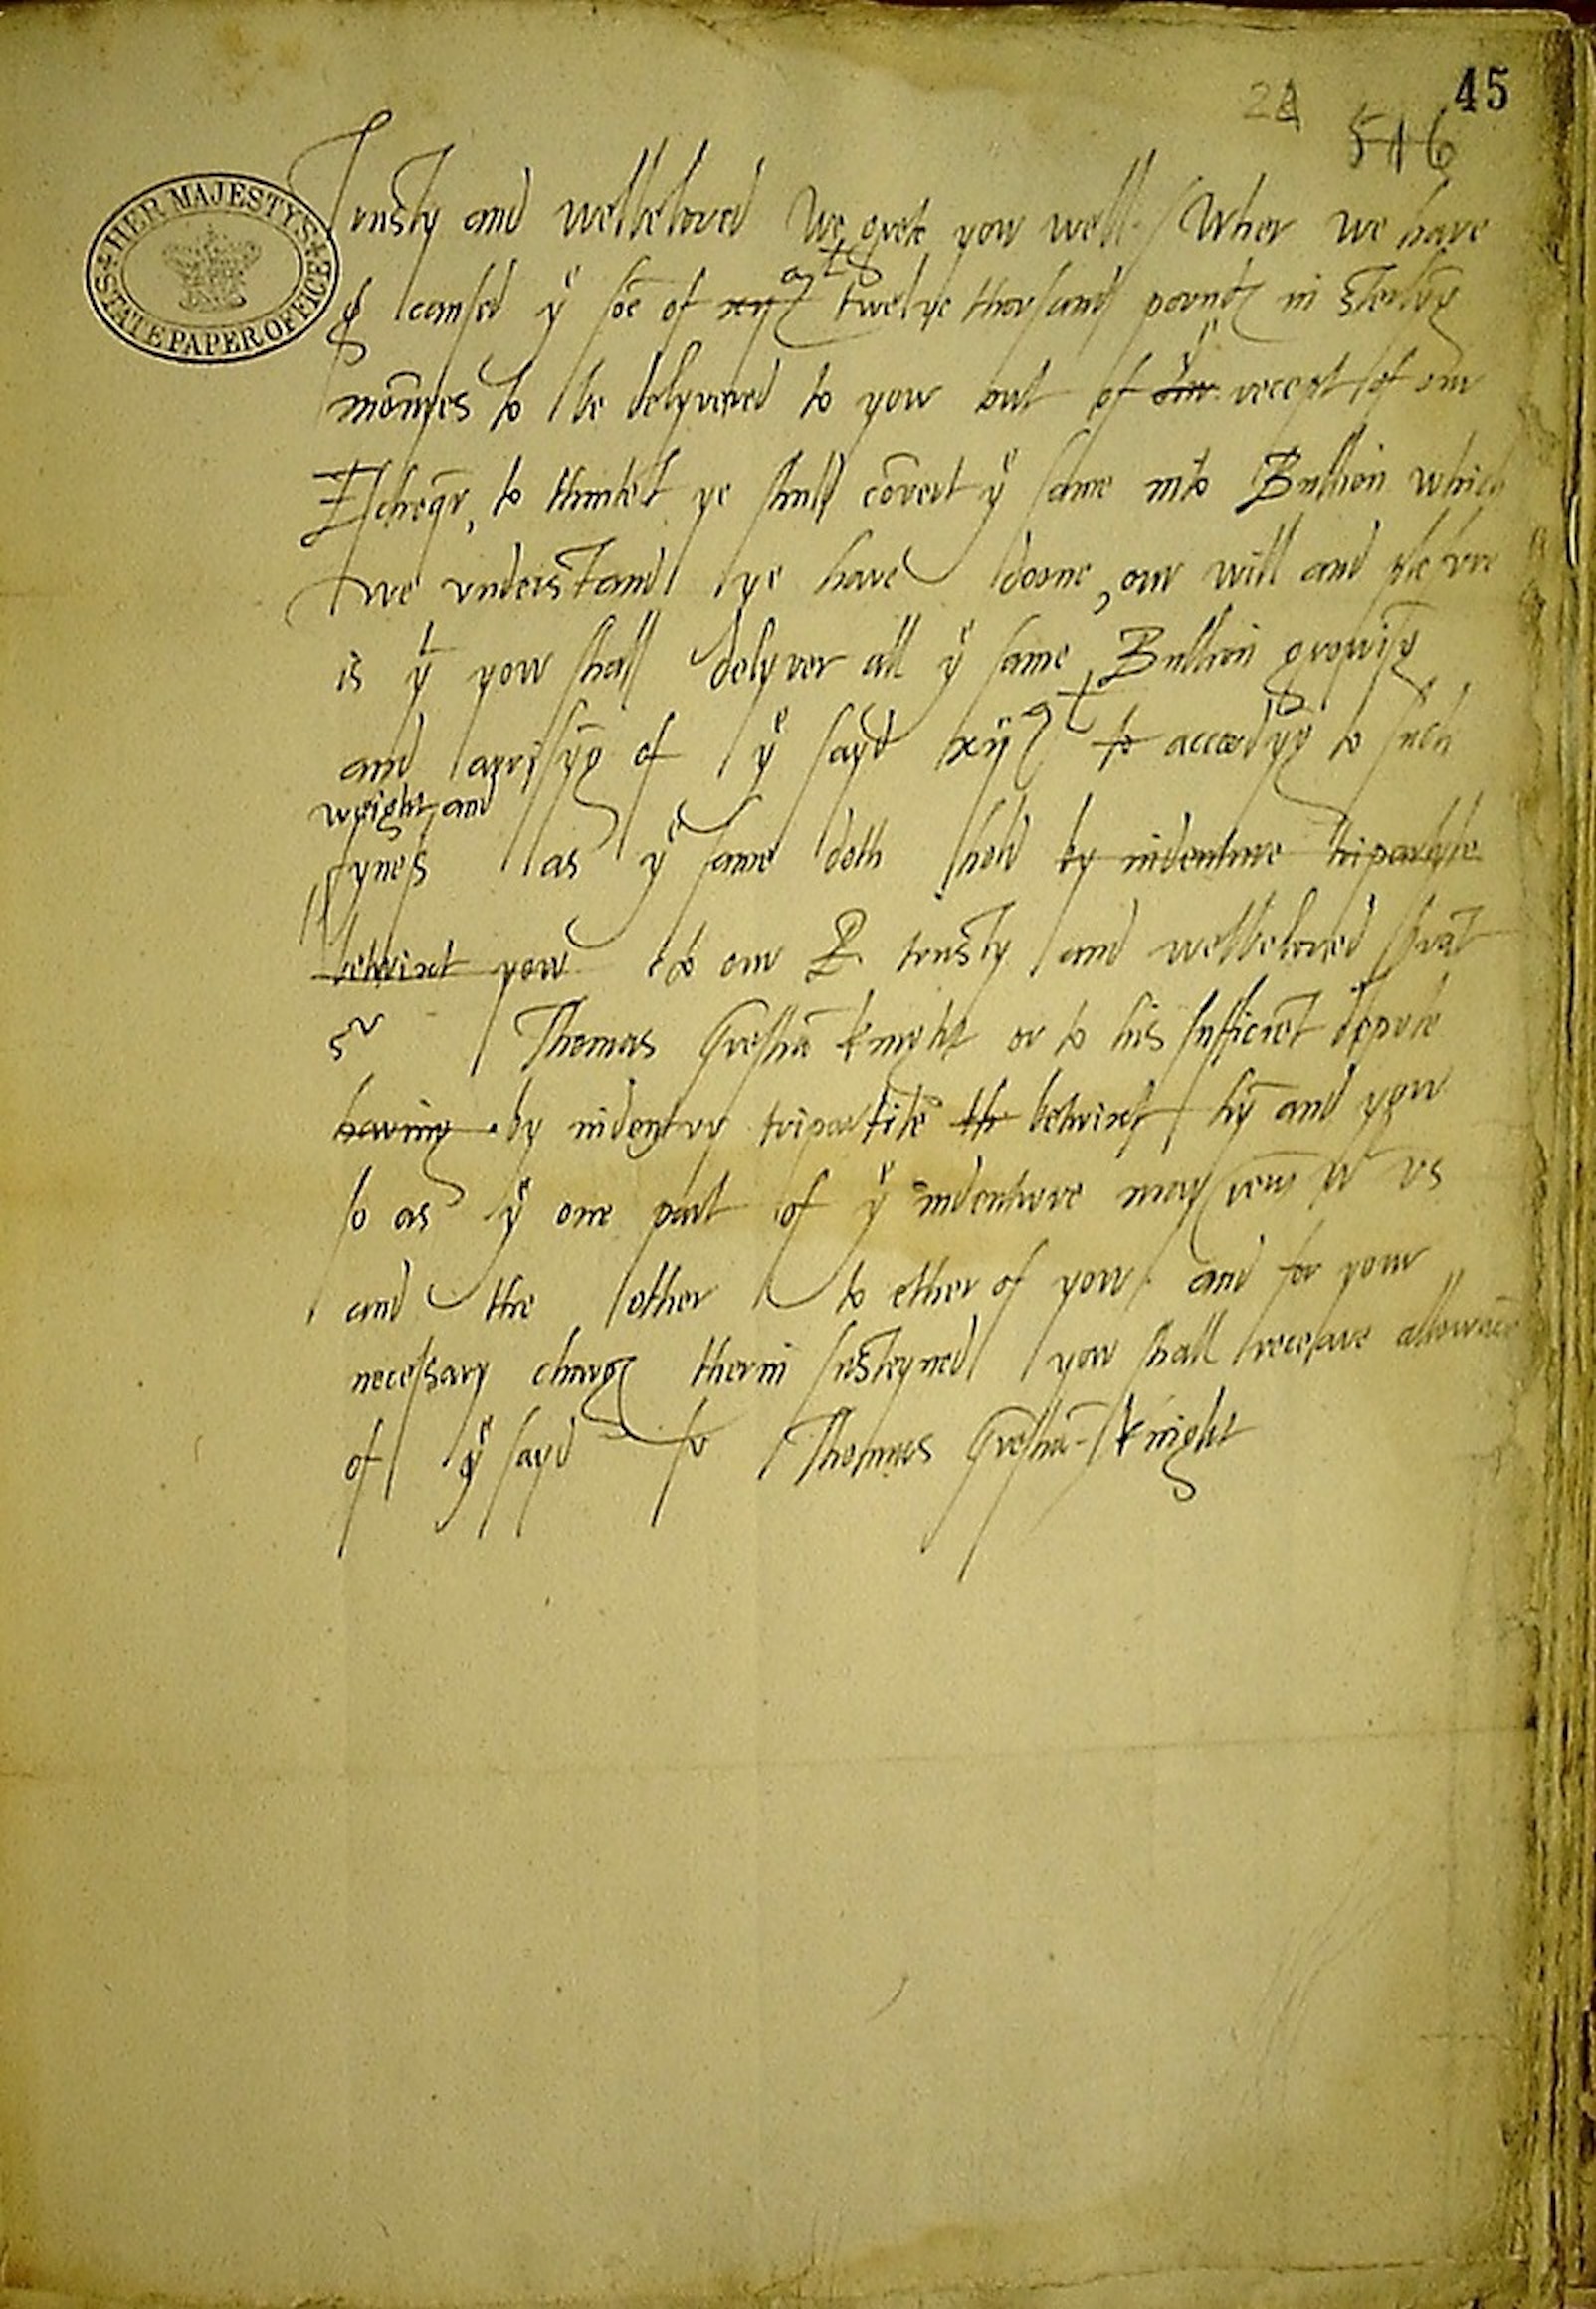 45
24
516
HER MAJESTY'S STATE PAPER OFFICE
Trusty and welbeloved we grete yow well / Wher we have
caused yͤ so͞e of xijᵐˡⁱ twelve thowsand powndꝭ in sterly͞g
mo͞nyes to be delyvered to yow out of our yͤ receipt of our
Eschequer, to thintēt ye shuld co͞vert yͤ same into Bullion which
we understand ye have doone, our will and plesure
is yᵗ yow shall delyver all yͤ same Bullion growi͞g
and arrisy͞g of yͤ sayd xijᵐˡⁱ to accordy͞g to such
weight and
fynes as yͤ same doth hold by indenture tripartyte
betwixt yow to our trusty and welbeloved s͞rvāt
Sʳ Thomas Greshā knight or to his sufficiēt depute
having by indenture tripartite th betwixt hȳ and yow
so as yͤ one part of yͤ indenture may rem͞ wᵗ us
and the other to ether of yow. and for your
necessary chargꝭ therin susteyned yow shall receave allowance
of yͤ sayd Sʳ Thomas Greshā knight